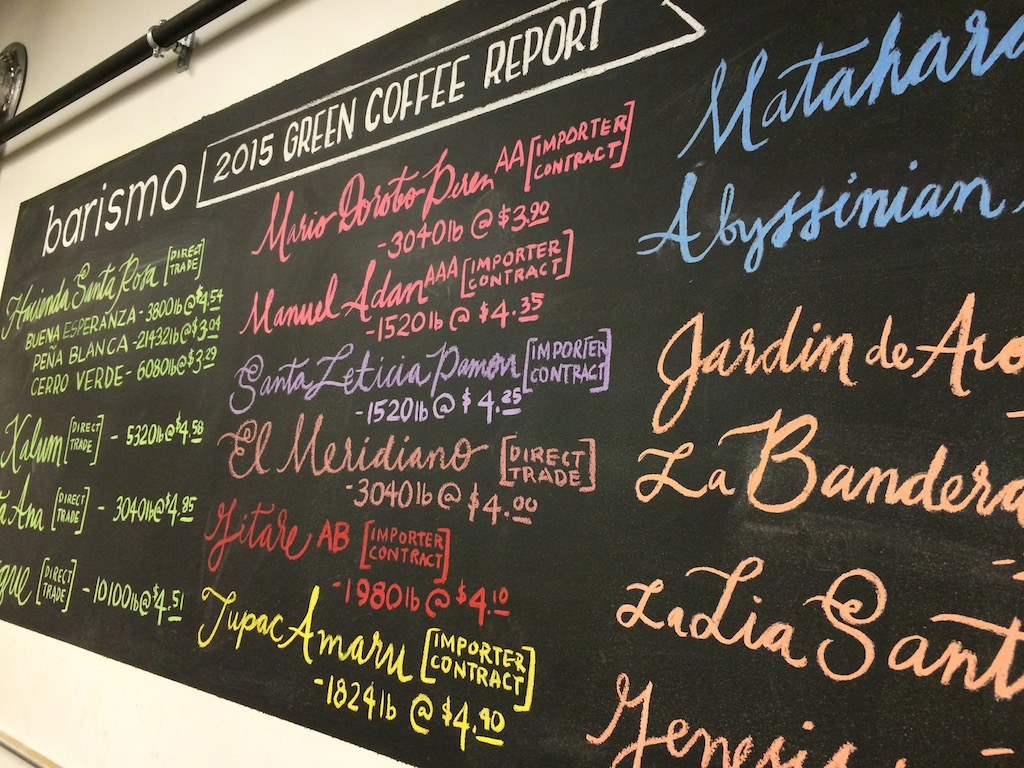 barismo 2015 GREEN COFFEE REPORT
Hacienda Santa Rosa [DIRECT TRADE]
BUENA ESPERANZA - 3800lb @ $4.54
PEÑA BLANCA - 21432lb @ $3.04
CERRO VERDE - 6080lb @ $3.29
Xalum [DIRECT TRADE] - 5320lb @ $4.58
Ana [DIRECT TRADE] - 3040lb @ $4.85
[DIRECT TRADE] - 10100lb @ $4.51
Mario Doroto Peren AA [IMPORTER CONTRACT]
- 3040lb @ $3.90
Manuel Adan AAA [IMPORTER CONTRACT]
- 1520lb @ $4.35
Santa Leticia Pamon [IMPORTER CONTRACT]
- 1520lb @ $4.25
El Meridiano [DIRECT TRADE]
- 3040lb @ $4.00
Gitare AB [IMPORTER CONTRACT]
- 1980lb @ $4.10
Tupac Amaru [IMPORTER CONTRACT]
- 1824lb @ $4.40
Matahara
Abyssinian
Jardin de
La Bandera
La Lia Sant
Genesis